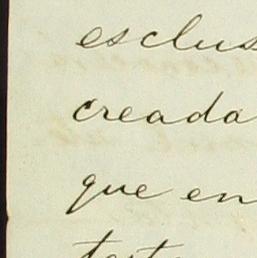 esclus
creada
que en